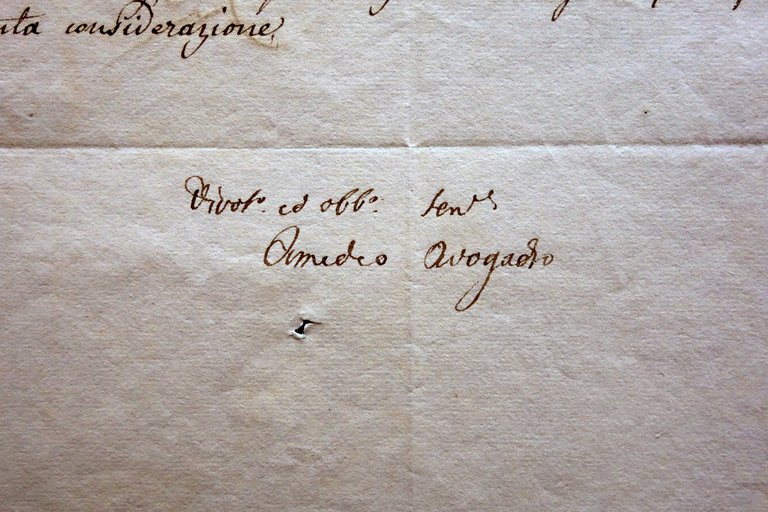 considerazione
Divot.o ed obb.o ser.e
Amedeo Avogadro